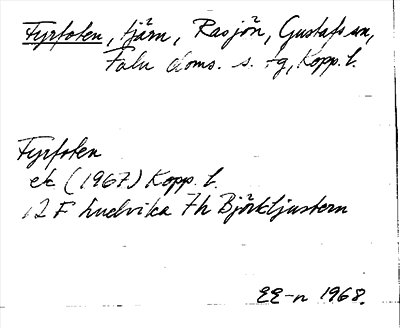 Fyrfoten, tjärn, Rasjön, Gustafs sn,
Falu doms. s. tg, Kopp. l.
Fyrfoten
ek (1967) Kopp. l.
12 F Ludvika 7h Björkljustern
EE-n 1968.